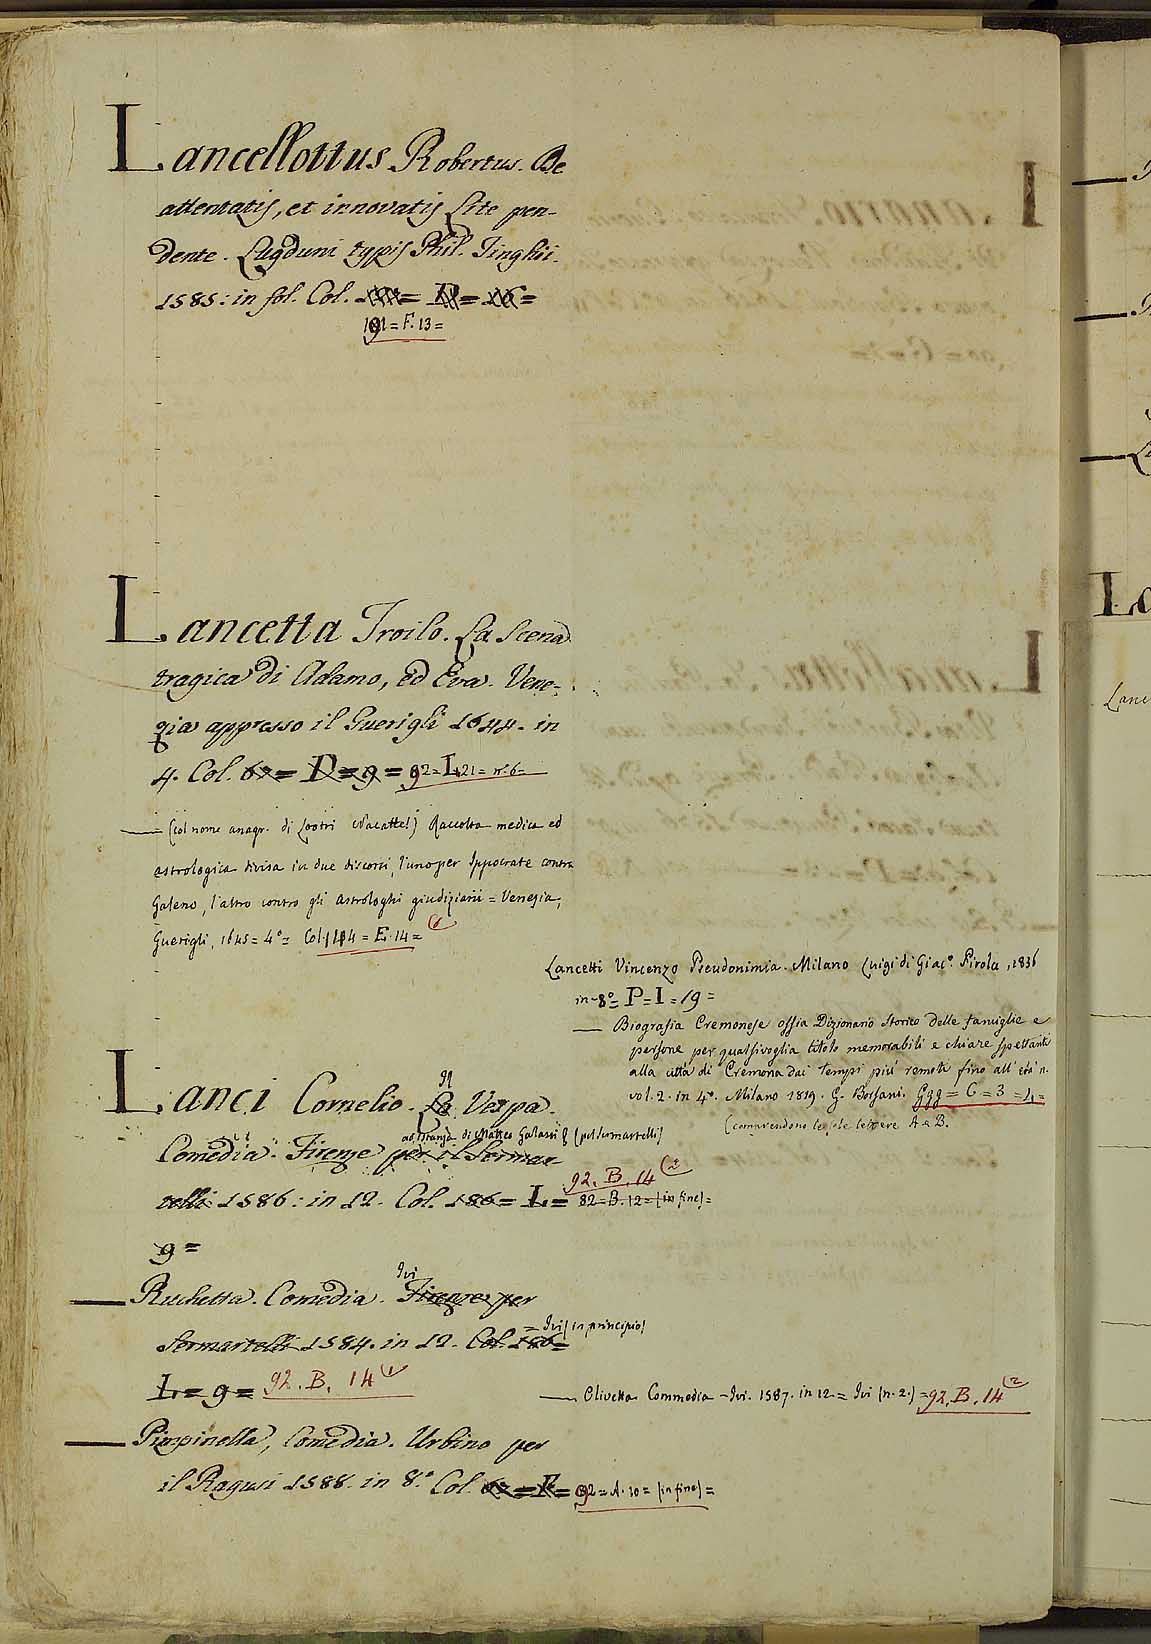 Lancellottus Robertus. De
attentatis, et innovatis Lite pen-
dente. Lugduni typis Phil. Tinghii.
1585: in fol. Col.
191 = F. 13 =
Lancetta Troilo. La Scena
tragica di Adamo, ed Eva. Vene-
zia appresso il Guerigli 1644. in
4. Col. 62 = D = 9 = 92 = L. 21 = n. 6 =
— (col nome anagr. di Lootri) Raccolta medica ed
astrologica divisa in due discorsi, l'uno per Ippocrate contra
Galeno, l'altro contro gli astrologhi giudiziarii = Venezia,
Guerigli, 1645 = 4° = Col. 144 = E. 14 =
Lancetti Vincenzo Pseudonimia. Milano Luigi di Giac.° Pirola, 1836
in-8° = P = I = 19 =
— Biografia Cremonese ossia Dizionario Storico delle famiglie e
persone per qualsivoglia titolo memorabili e chiare spettanti
alla città di Cremona dai tempi più remoti fino all'età n.
vol. 2. in 4°. Milano 1819. G. Borsani. Ggg = C = 3 = 4 =
(comprendono le sole lettere A e B.
Lanci Cornelio. La Vespa.
ad istanza di Matteo Galassi (pel Sermartelli)
Comedia. Firenze per il Sermar-
telli 1586: in 12. Col. 186 = L = 82 = B. 12 = (in fine) =
92. B. 14
9 =
— Ruchetta. Comedia. Firenze per
Ivi
Sermartelli 1584. in 12. Col. 186 =
= Ivi (in principio)
L = 9 = 92. B. 14
— Olivetta Commedia - Ivi. 1587. in 12 = Ivi (n. 2.) = 92. B. 14
— Pimpinella, Comedia. Urbino per
il Ragusi 1588. in 8.° Col. 92 = A. 10 = (in fine) =